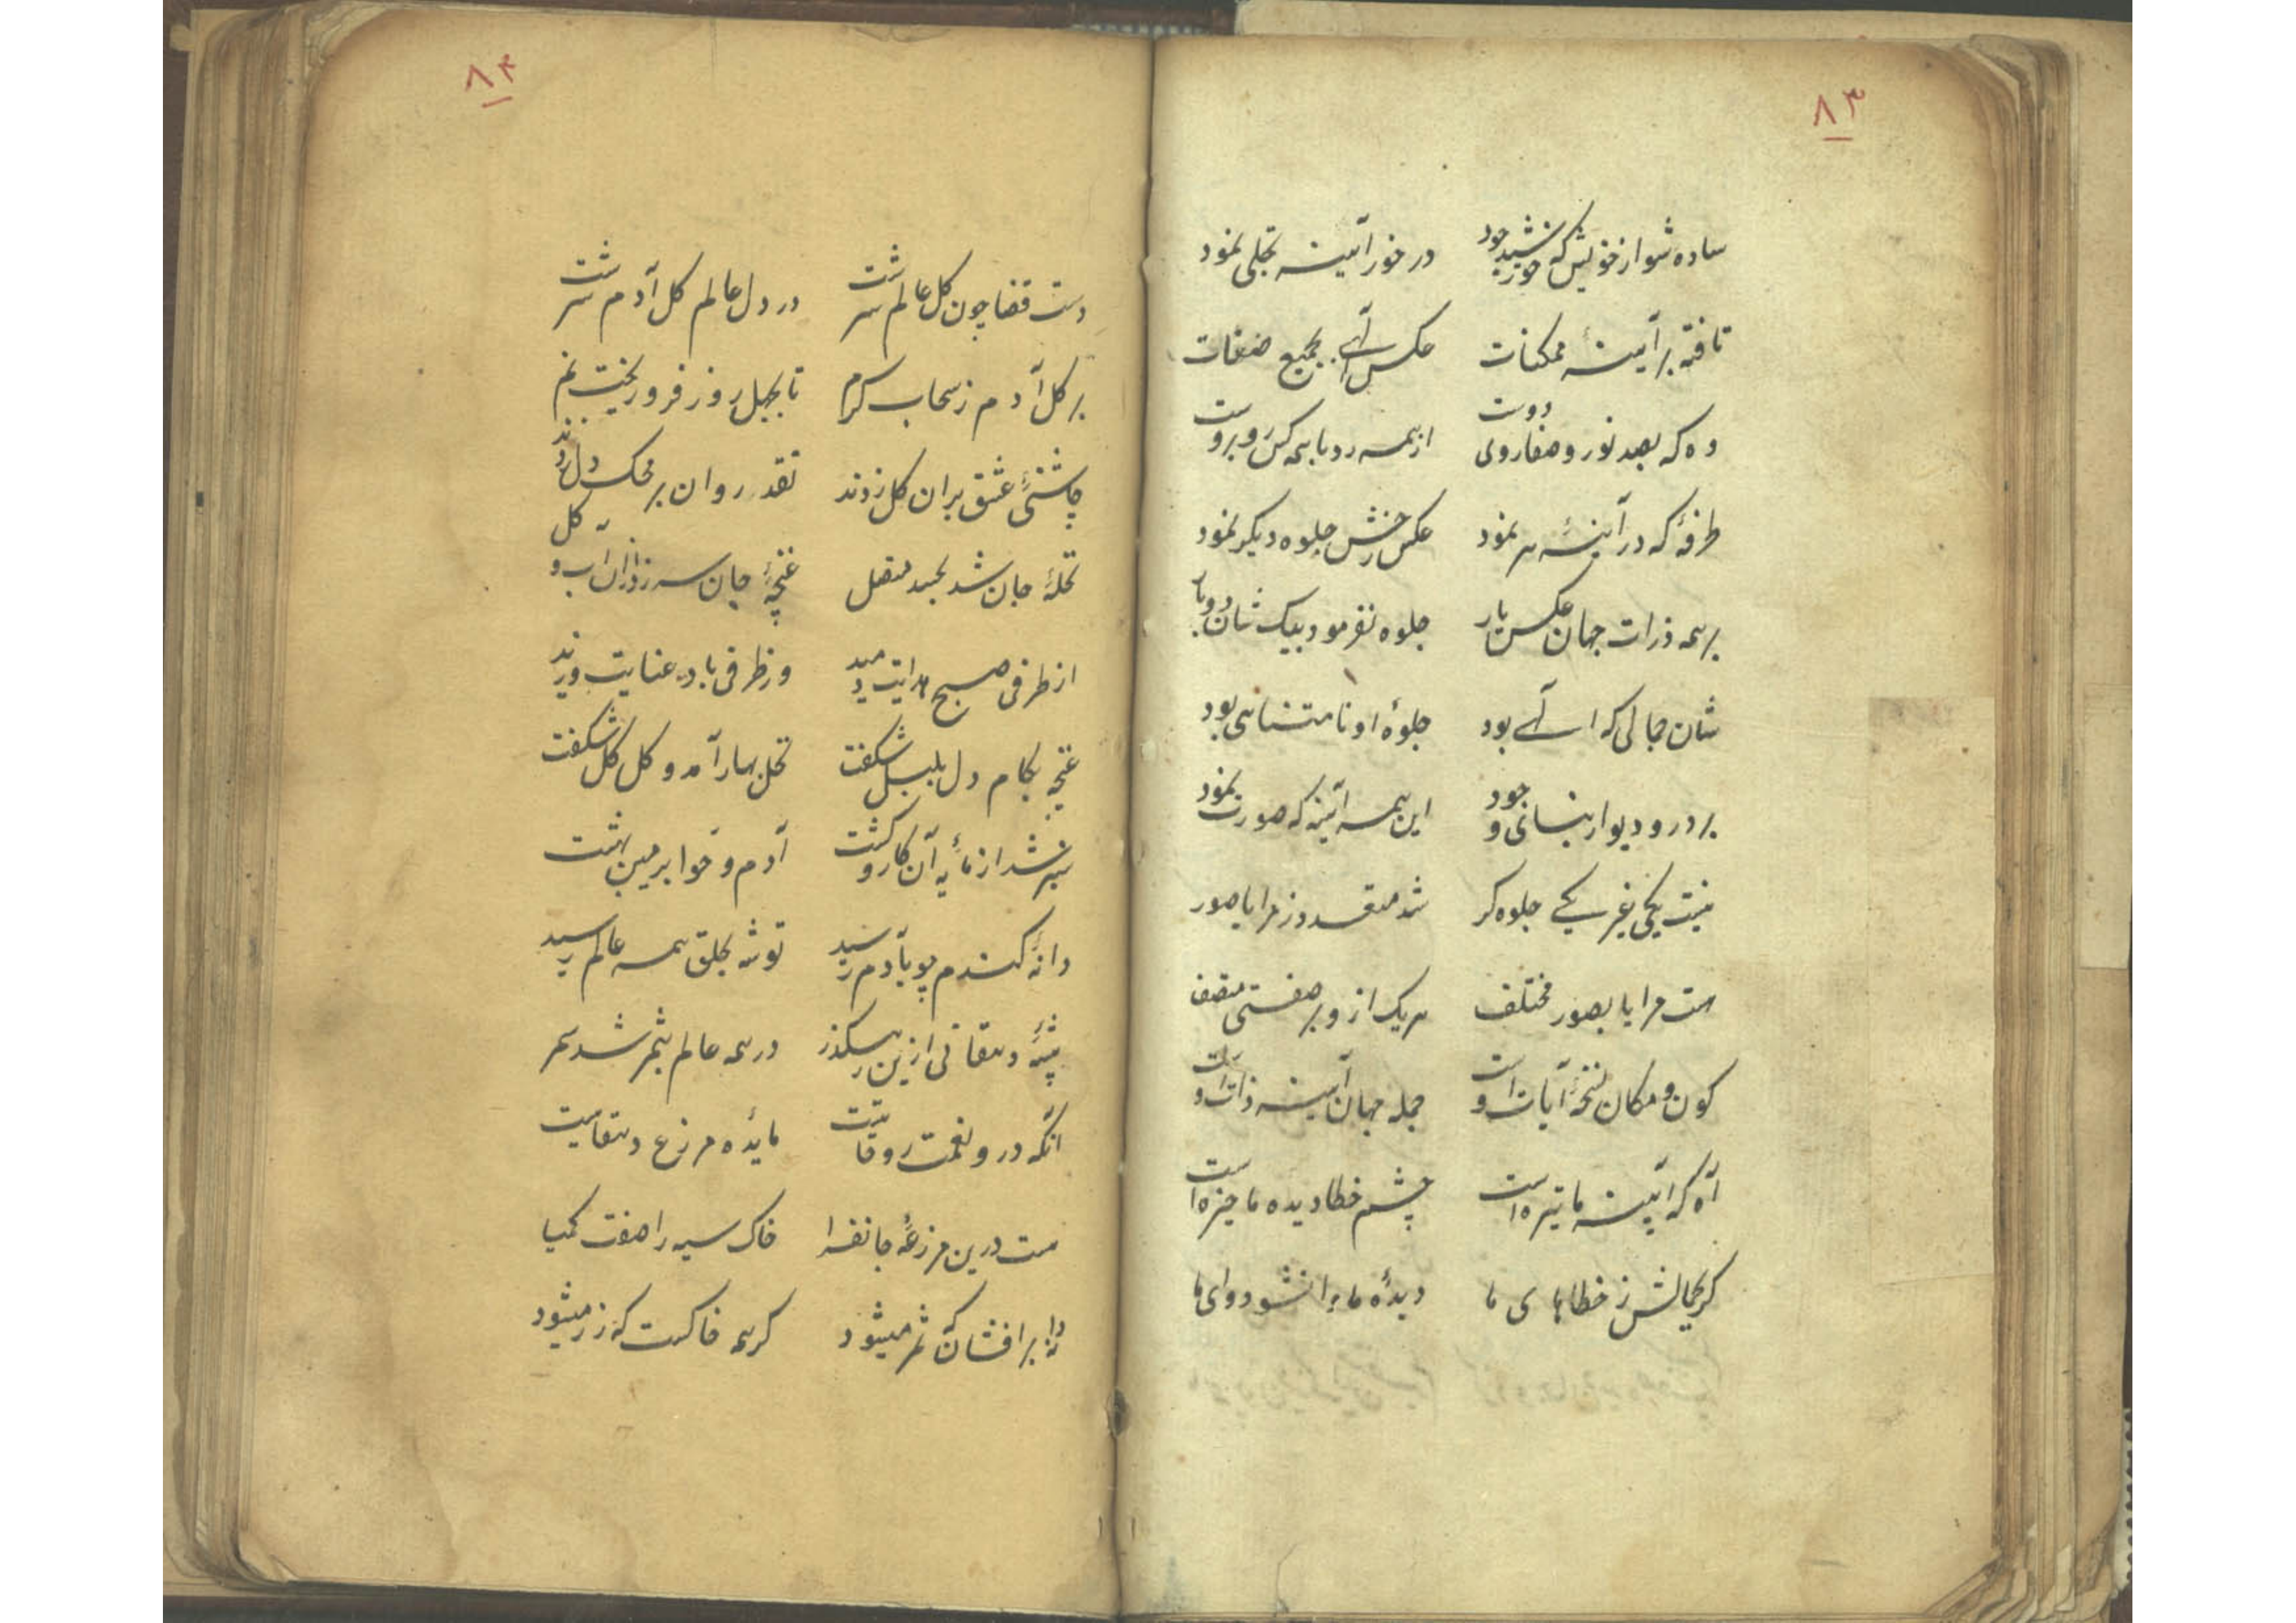 ۸۳
ساده شو از خویش که خورشید جود در خور آئینه تجلی نمود
تافته بر آینهٔ ممکنات عکس الهی بجمیع صفات
وه که بصد نور و صفا روی دوست از همه رو با همه کس روبروست
طرفه که در آینهٔ هر نمود عکس رخش جلوه دیگر نمود
بر همه ذرات جهان عکس یار جلوه نفرمود بیک شان دو بار
شان جمالی که الهی بود جلوهٔ او نامتناهی بود
بر در و دیوار بنای وجود این همه آئینه که صورت نمود
نیست یکی غیر یکی جلوه کر شد متعدد ز مرایا صور
هست مرایا بصور مختلف هر یک از و بر صفتی متصف
کون و مکان نسخهٔ آیات اوست جمله جهان آینه ذات اوست
آه که آئینه ما تیره است چشم خطا دیده ما خیره است
کر بکمالش ز خطاهای ما دیدهٔ ما وا نشود وای ما
۸۴
دست قضا چون کل عالم سرشت در دل عالم کل آدم سرشت
بر کل آدم ز سحاب کرم تا بچهل روز فرو ریخت نم
چاشنیٔ عشق بران کل زدند نقد روان بر محک دل زدند
نخلهٔ جان شد بجسد متصل غنچهٔ جان سر زد ازان آب و کل
از طرفی صبح هدایت دمید وز طرفی باد عنایت وزید
غنچه بکام دل بلبل شکفت نخل ببار آمد و کل کل شکفت
سبز شد از مایهٔ آن کار و کشت آدم و حوا بزمین بهشت
دانهٔ کندم چو بآدم رسید توشه بخلق همه عالم رسید
پیشهٔ دهقانی ازین رهکذر در همه عالم بثمر شد سمر
آنکه درو نعمت روحانیست مایدهٔ مزرع دهقانیست
هست درین مزرعهٔ جانفزا خاک سیه را صفت کیمیا
دانه برافشان که ثمر میشود کر همه خاکست که زر میشود